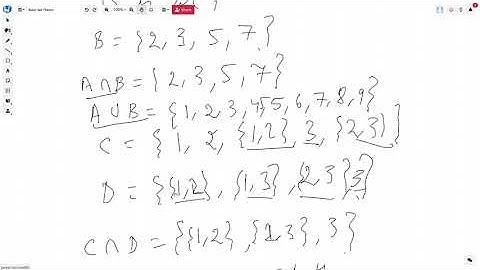 100%
Share
B = {2, 3, 5, 7}
A ∩ B = {2, 3, 5, 7}
A ∪ B = {1, 2, 3, 4, 5, 6, 7, 8, 9}
C = {1, 2, {1,2}, 3, {2,3}}
D = {{1,2}, {1,3}, {2,3}, 3}
C ∩ D = {{1,2}, {2,3}, 3}